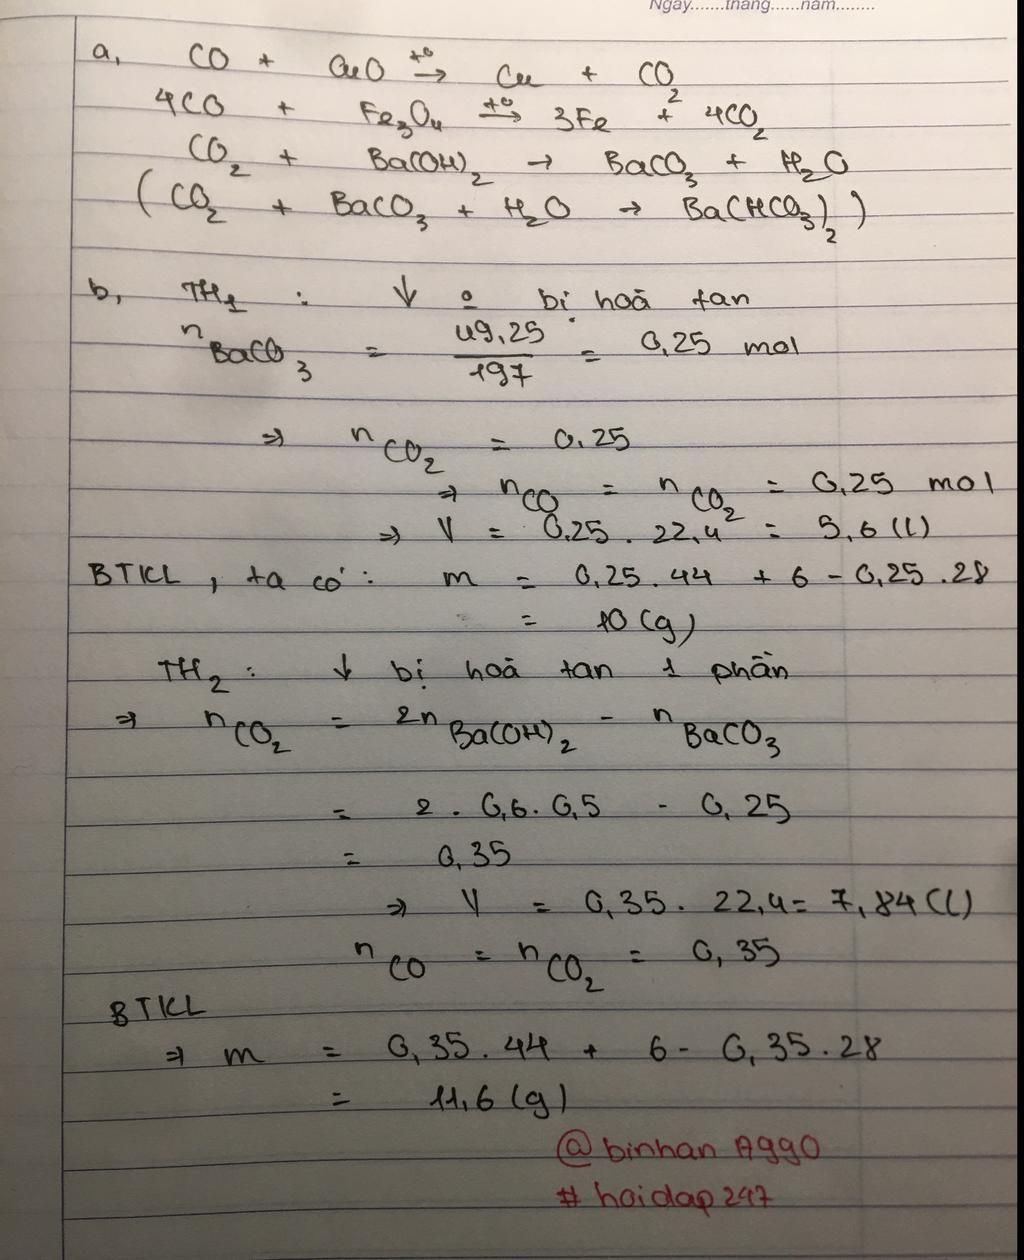 Ngày.......tháng......năm........
a, CO + CuO t° → Cu + CO2
4CO + Fe3O4 t° → 3Fe + 4CO2
CO2 + Ba(OH)2 → BaCO3 + H2O
(CO2 + BaCO3 + H2O → Ba(HCO3)2)
b, TH1 : ↓ o bị hoà tan
nBaCO3 = 49,25 / 197 = 0,25 mol
⇒ nCO2 = 0,25
⇒ nCO = nCO2 = 0,25 mol
⇒ V = 0,25 . 22,4 = 5,6 (l)
BTKL, ta có: m = 0,25.44 + 6 - 0,25.28
= 10 (g)
TH2: ↓ bị hoà tan 1 phần
⇒ nCO2 = 2nBa(OH)2 - nBaCO3
= 2 . 0,6 . 0,5 - 0,25
= 0,35
⇒ V = 0,35 . 22,4 = 7,84 (l)
nCO = nCO2 = 0,35
BTKL
⇒ m = 0,35.44 + 6 - 0,35.28
= 11,6 (g)
@binhan Agg0
# hoidap247